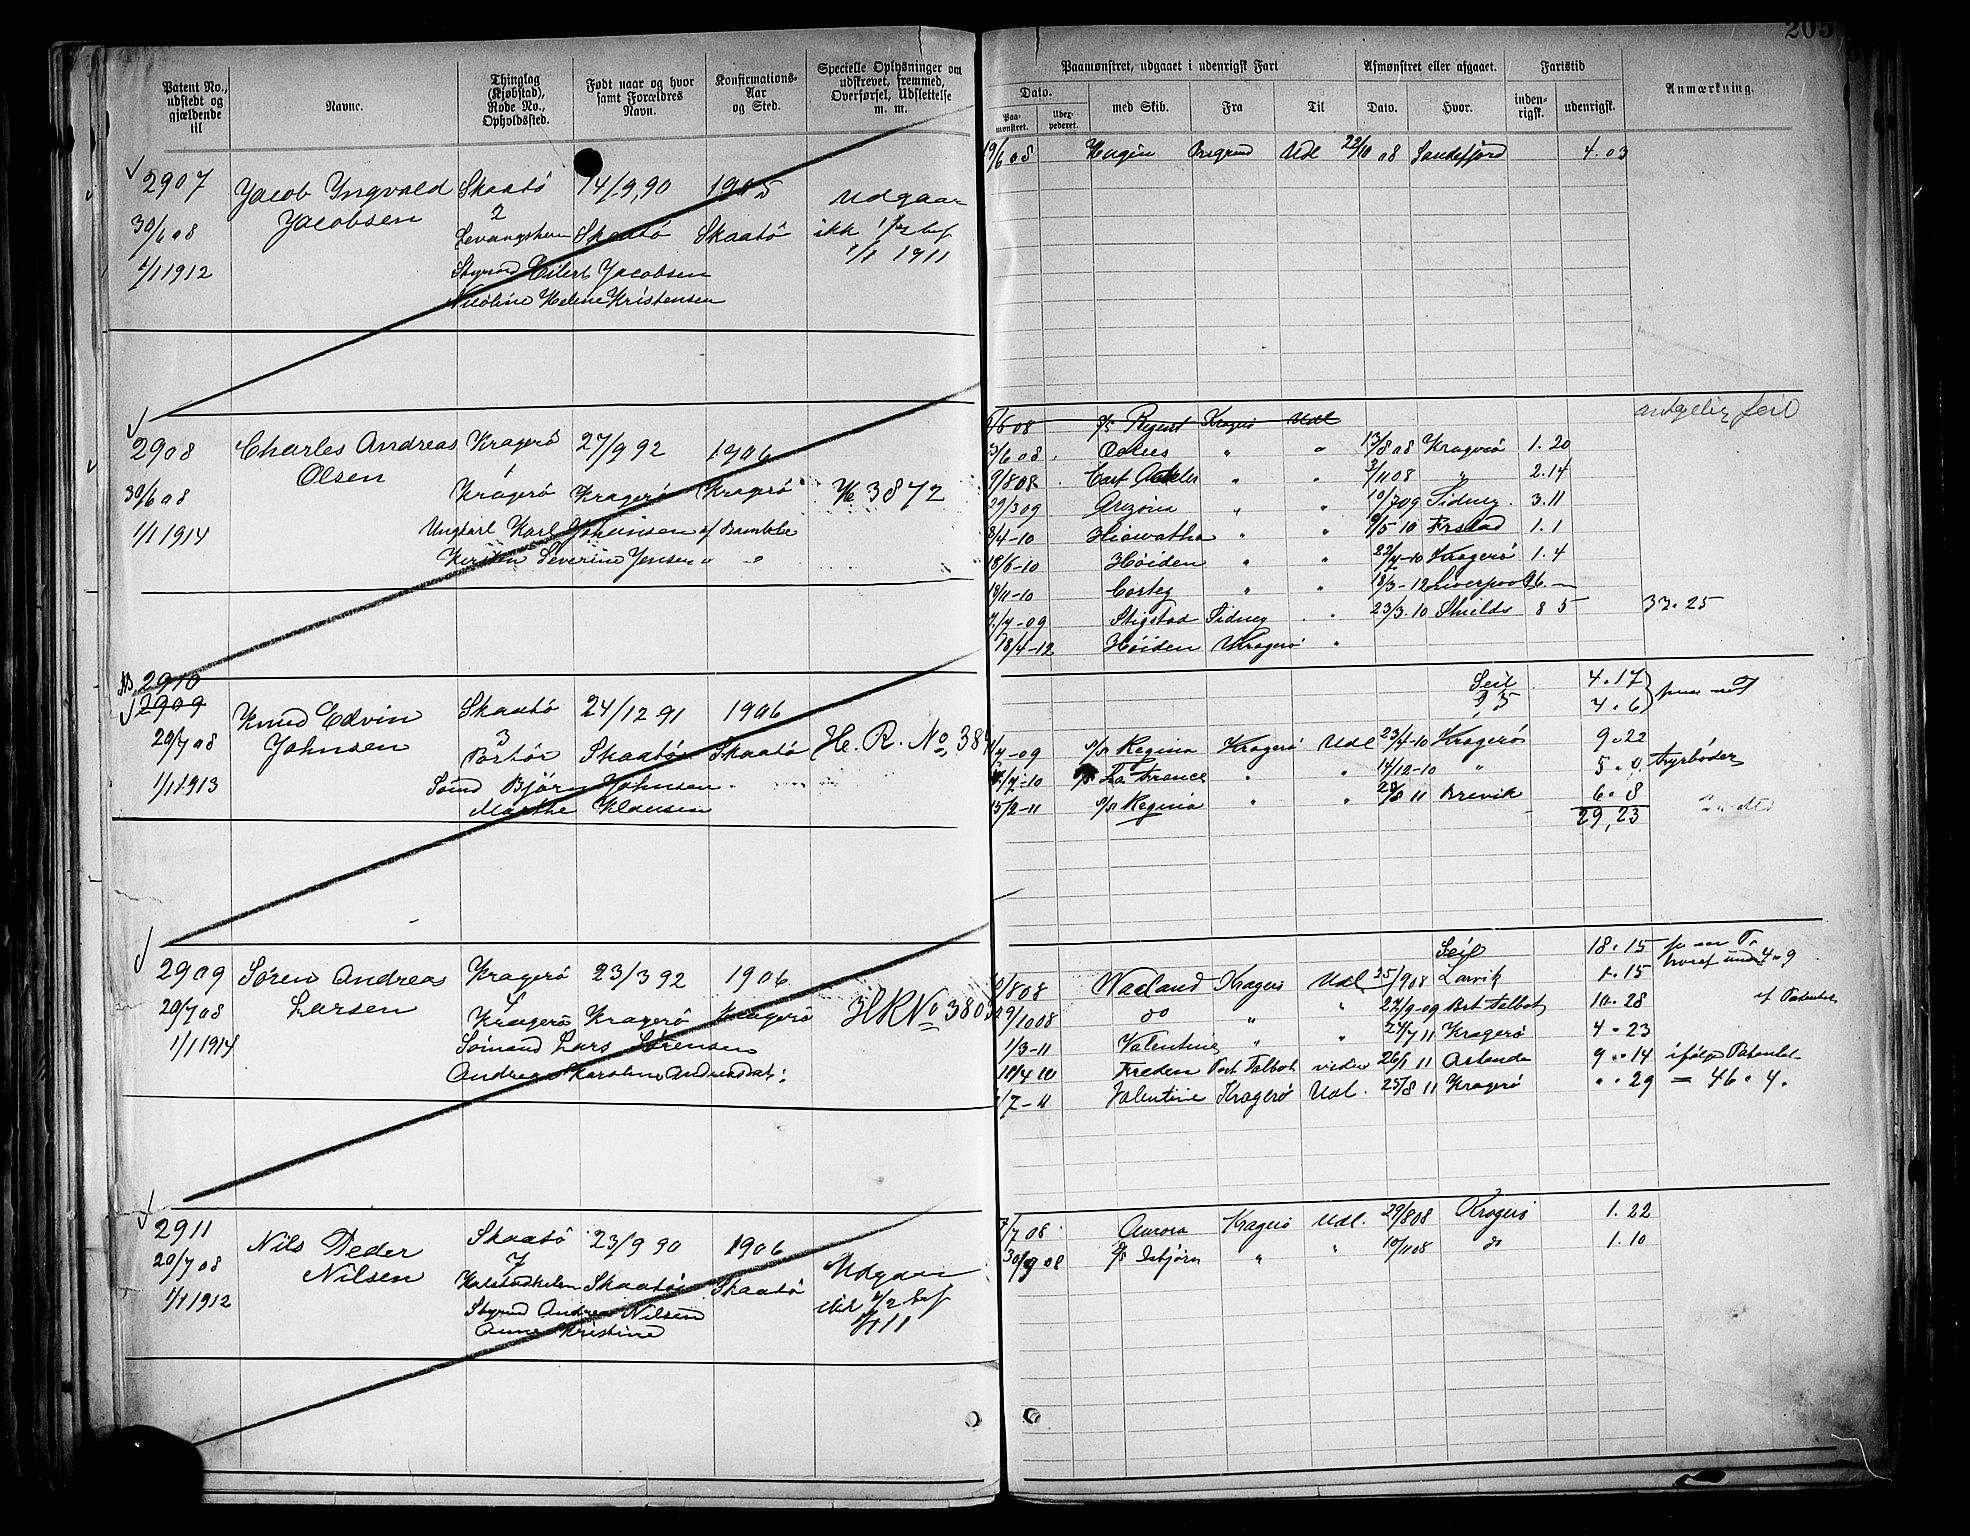 205
Patent No., udstedt og gjældende til
Navne.
Thinglag (Kjøbstad), Rode No., Opholdssted.
Født naar og hvor samt Forældres Navn.
Konfirmations-Aar og Sted.
Specielle Oplysninger om udskrevet, fremmed, Overførsel, Udslettelse m. m.
Paamønstret, udgaaet i udenrigsk Fart
Dato.
Paa-mønstret.
Udex-pederet.
med Skib.
Fra
Til
Afmønstret eller afgaaet.
Dato.
Hvor.
Fartstid
inden-rigsk.
udenrigsk.
Anmærkning.
2907 Jacob Yngvald Skaatö 14/9,90 1905 Udgaar
Jacobsen 2
30/6 08 Skaatö Skaatö ikk
1/1 1912 1/1 1911
Eilert Jacobsen
Nicoline Helene Kristensen
19/6 08 Hugin Porsgrund Udl 22/10 08 Sandefjord 4.03
2908 Charles Andreas Kragerö 27/9 92 1906
Olsen 1
30/6 08 Kragerö Kragerö Kragerö H 3872
1/1 1914 Ungkarl Karl Johansen af Bamble
Kirsten Severine Jensen " "
/6 08 Regent Kragerö Udl
/6 08 " " 13/8 08 Kragerö 1.20
/8 08 " " 2/11 08 " 2.14
29/3 09 Arizona " " 10/7 09 Sidney 3.11
/4-10 Hiawatha " " /5 10 1.1
18/6-10 Höiden " " Kragerö 1.4
/11-10 " " 18/3-12 Liverpool
/7-09 Stigstad Sidney " 23/3.10 Shields 8 5 33.25
18/4-12 Höiden Kragerö "
2910
2909
Knud Edvin Skaatö 24/12 91 1906
20/7 08 Johnsen 3
Portör Skaatö Skaatö H. R. No 38
1/1 1913 Björn Johnsen
Marthe Klausen
Seil 4.17
4.6
/4-09 Regina Kragerö Udl 23/4-10 Kragerö 9.22
/7-10 La France " " 14/12-10 " 5.0 fyrböder
15/2-11 Regina " " 28/8 11 Brevik 6.8
29,23
2909 Sören Andreas Kragerö 23/3 92 1906
Larsen
20/7 08 Kragerö Kragerö Kragerö HR No 380
1/1 1914 Sömand Lars Sörensen
Andrea Karoline Andreasdat:
Seil 18.15
/8 08 Waaland Kragerö Udl 25/9 08 Larvik 1.15
29/10 08 do " " 22/9-09 Port Talbot 10.28
1/3-11 Valentine " " 27/7 11 Kragerö 4.23
10/4 10 Freden Port Talbot videre 26/1 11 9.14 ifölge
/7-11 Valentine Kragerö Udl. 25/8 11 Kragerö .. 29 = 46.4.
2911 Nils Peder Skaatö 23/9 90 1906
Nilsen 7
20/7 08 Skaatö Skaatö Udgaar
1/1 1912 Andreas Nilsen
Anne Kristine
/7 08 Aurora Kragerö Udl. 29/8 08 Kragerö 1.22
30/9 08 Isbjörn " " 10/11 08 do 1.10